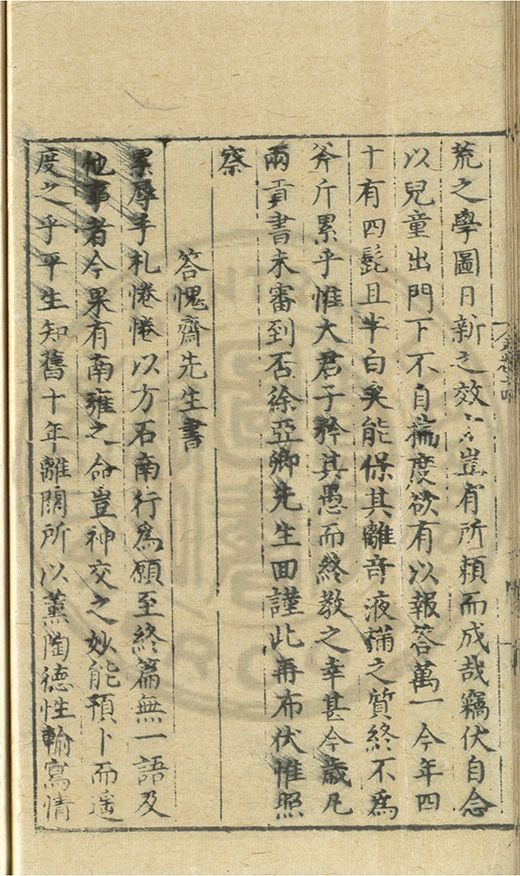 荒之學圖日新之效豈有所賴而成哉竊伏自念
以兒童出門下不自揣度欲有以報答萬一今年四
十有四髭且半白矣能保其離奇液樠之質終不為
斧斤累乎惟大君子矜其愚而終教之幸甚今歲凡
兩貢書未審到否徐亞卿先生回謹此再布伏惟照
察
答愧齋先生書
累辱手札惓惓以方石南行為願至終篇無一語及
他事者今果有南雍之命豈神交之妙能預卜而遥
度之乎平生知舊十年離闊所以薰陶德性輸寫情